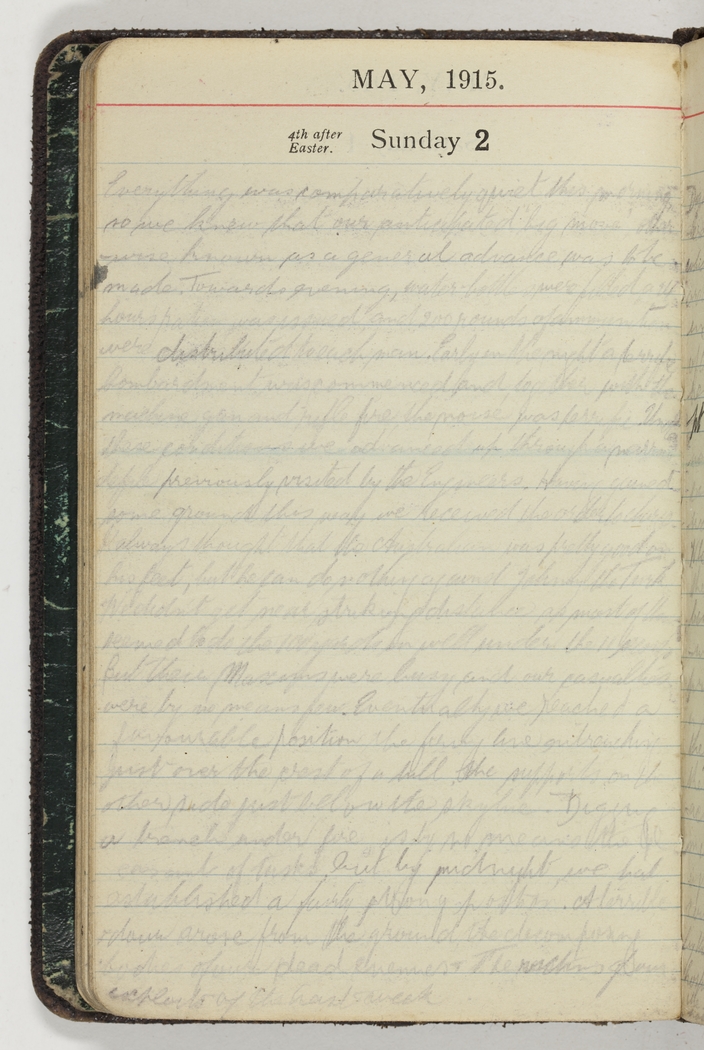 MAY, 1915.
4th after
Easter.
Sunday 2
Everything was comparatively quiet this morning
so we knew that our anticipated "big move" other
-wise known as a general advance was to be
made. Towards evening, water bottles were filled a
hours ration was issued and 200 rounds of ammunition
were distributed to each man. Early in the night a terrific
bombardment was commenced and together with the
machine gun and rifle fire the noise was terrific. Under
these conditions we advanced up through a narrow
defile previously visited by the Engineers. Having gained
some ground this way we received the order to charge
I always thought that the Australian was pretty good on
his feet, but he can do nothing against Johnny the Turk
We didn't get near striking distance as most of them
seemed to do the 100 yards in well under the
But their Maxims were busy and our casualties
were by no means few. Eventually we reached a
favourable position the firing line entrenching
just over the crest of a hill the supports on the
other side just below the skyline. Digging
a trench under fire is by no means the
of tasks but by midnight we had
established a fairly strong position. A terrible
odour arose from the ground the decomposing
bodies of our dead enemies The of our
exploits of the last week